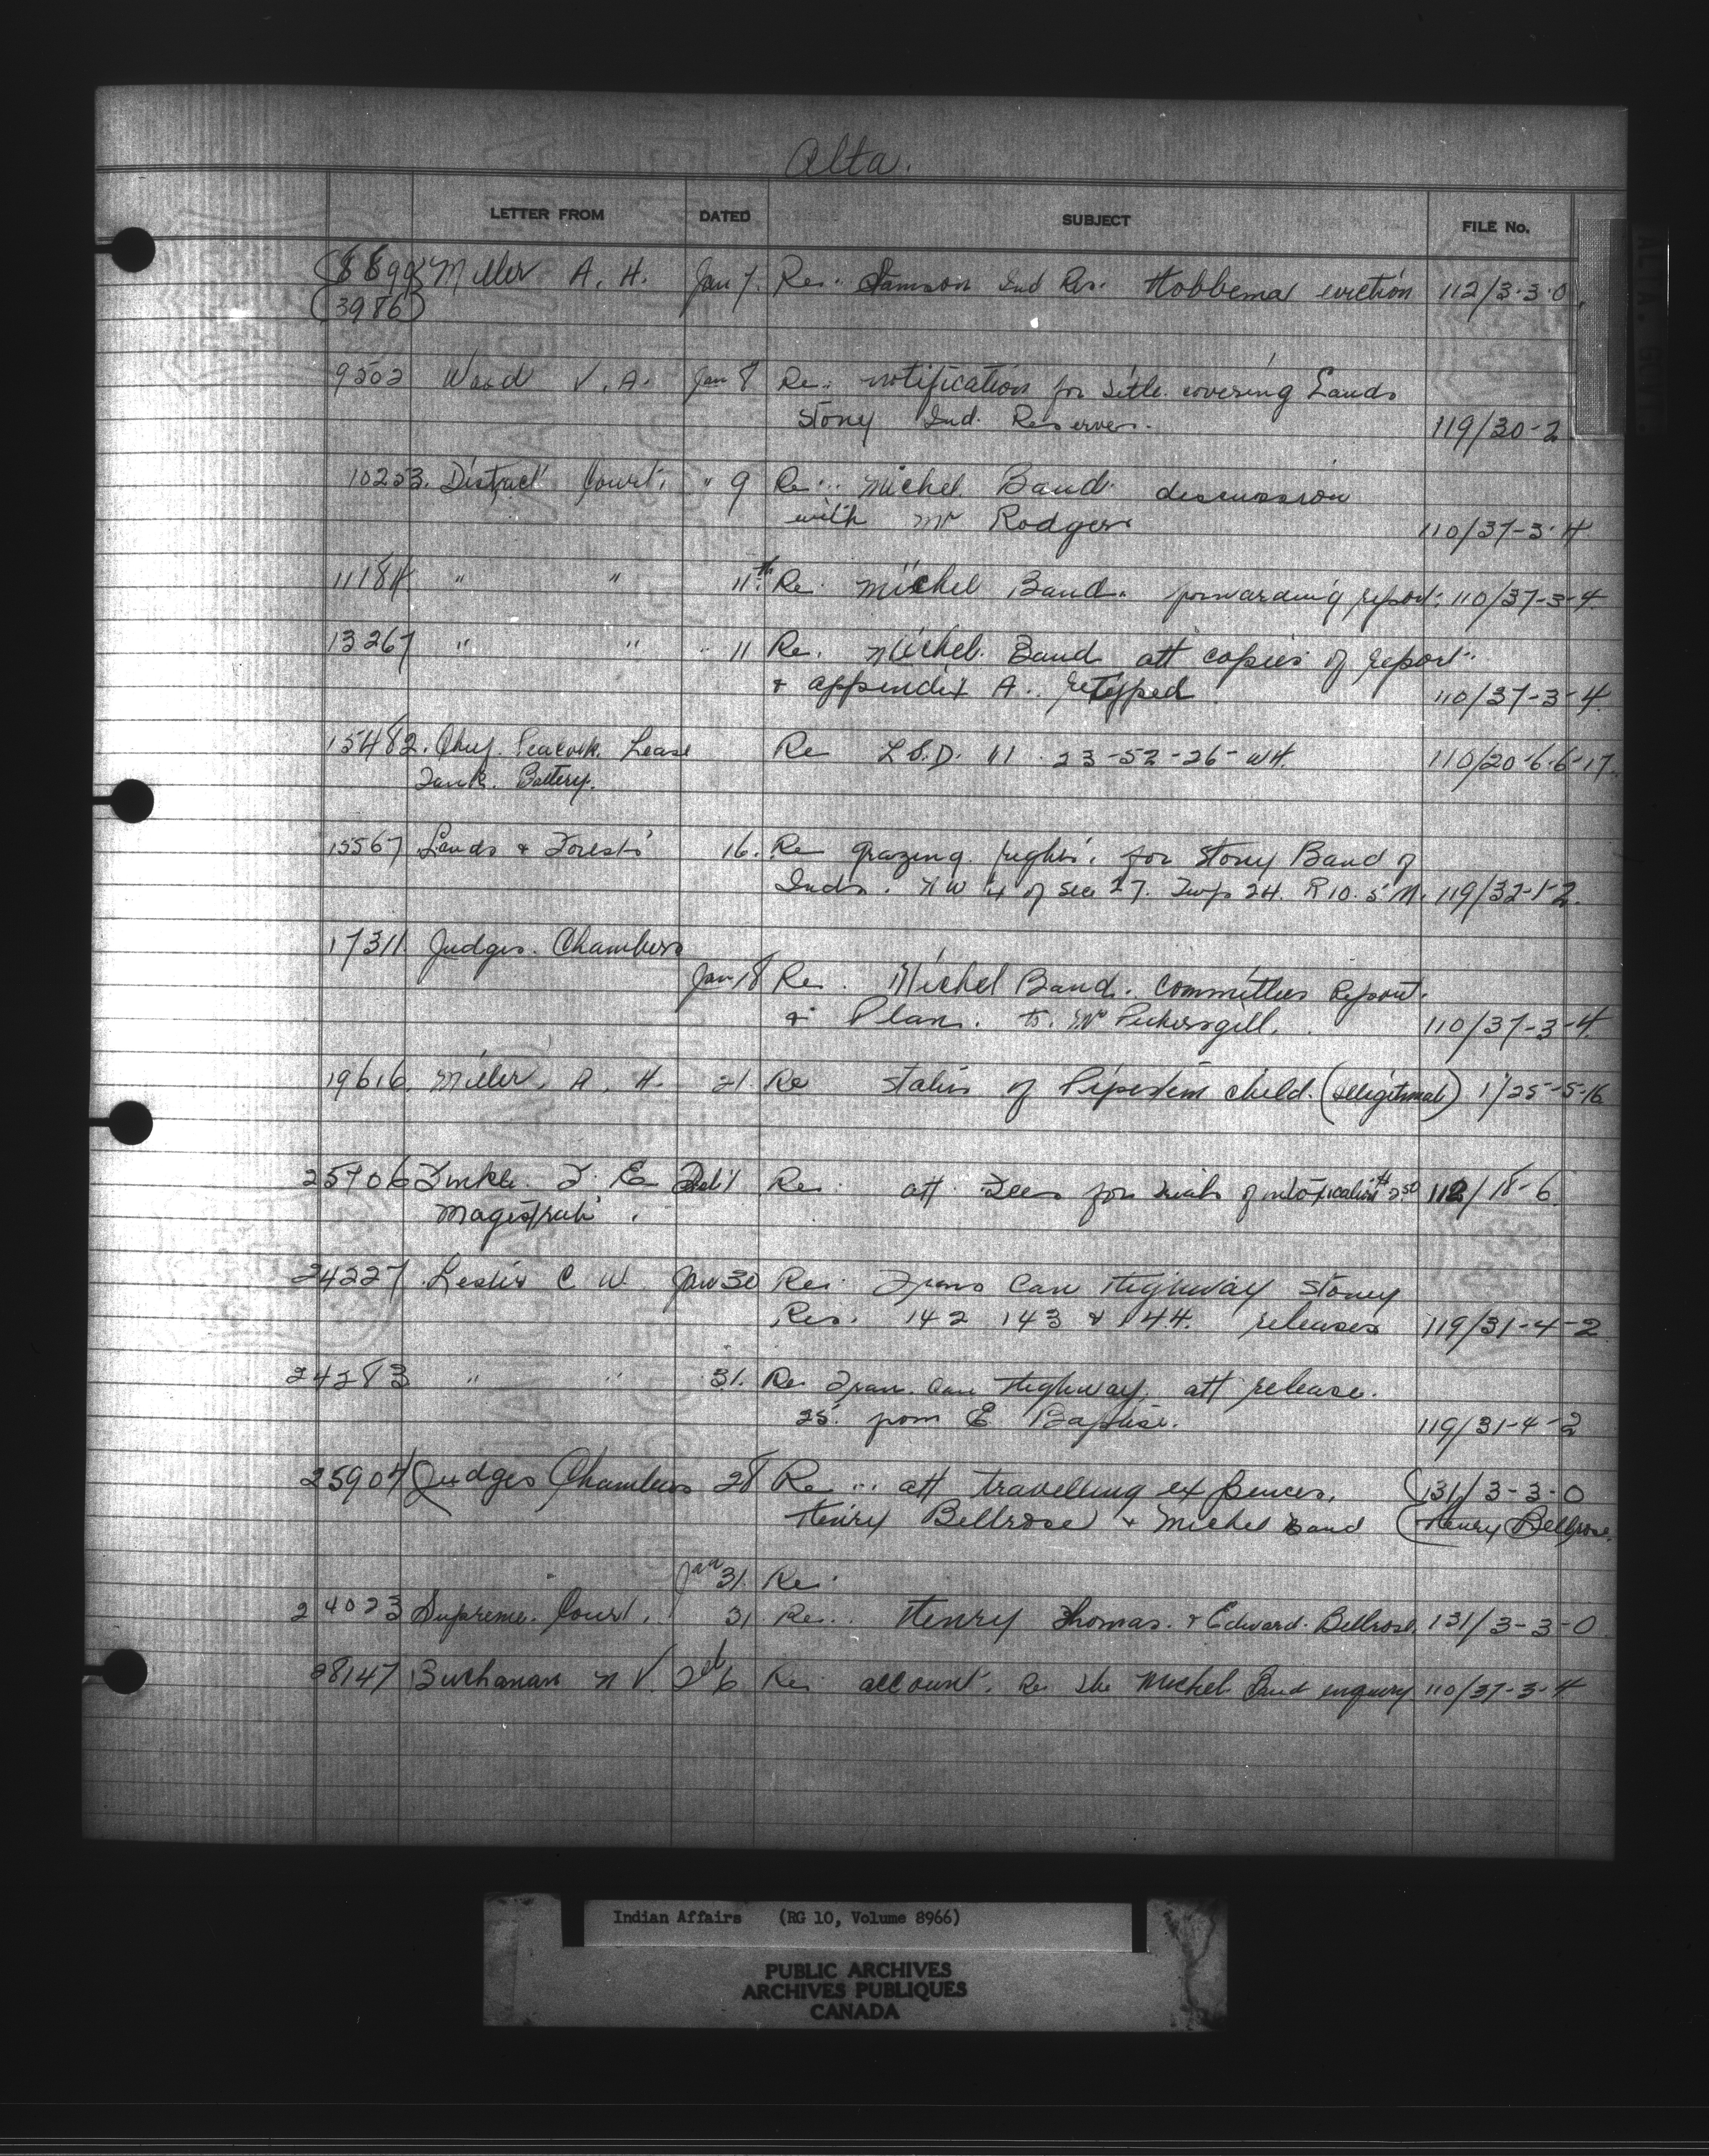 Alta.
LETTER FROM DATED SUBJECT FILE No.
8899 Miller A. H. Jan 7. Re: Samson Ind Res. Hobbema eviction 112/3-3-0
(3986)
9502 Wood V. A. Jan 8 Re: notification for title covering Lands
Stony Ind. Reserves. 119/30-2
10253. District Court. " 9 Re: Michel Band discussion
with Mr Rodgers 110/37-3-4
11184 " " 11th Re Michel Band. forwarding report. 110/37-3-4
13267 " " " 11 Re. Michel Band att copies of report
& appendix A. retyped 110/37-3-4.
15482. Chief Peacock Lease Re L.S.D. 11 . 23-52-26-W4. 110/20-6-6-17.
Tank Battery.
15567 Lands & Forests 16. Re grazing rights. for Stony Band of
Inds. NW 1/4 of Sec 27. Twp 24. R 10. 5 M. 119/32-1-2.
17311 Judges. Chambers
Jan 18 Re. Michel Band. Committees Report.
& Plan. to. Mr Pickersgill. 110/37-3-4.
19616. Miller, A. H. 21. Re Status of Pipestem child. (illegitimate) 1/25-5-16
25706 T. E. Feb 1 Re: att Fees for trials of intoxication $2.50 112/18-6
Magistrate.
24227 Leslie C W. Jan 30 Re: Trans Can Highway Stoney
Res. 142 143 & 144. releases 119/31-4-2.
24283 " " 31. Re Tran. Can Highway. att release.
25. from E Baptise. 119/31-4-2
25904 Judges Chambers 28 Re: att travelling expences, (131/3-3-0
Henry Bellrose & Michel Band (Henry Bellrose.
Jan 31. Re:
24023 Supreme. Court. 31. Re: Henry Thomas. & Edward. Bellrose. 131/3-3-0
28147 Buchanan N V. Feb 6 Re: account. Re the Michel Band enquiry 110/37-3-4
ALTA. GOVT.
Indian Affairs (RG 10, Volume 8966)
PUBLIC ARCHIVES
ARCHIVES PUBLIQUES
CANADA